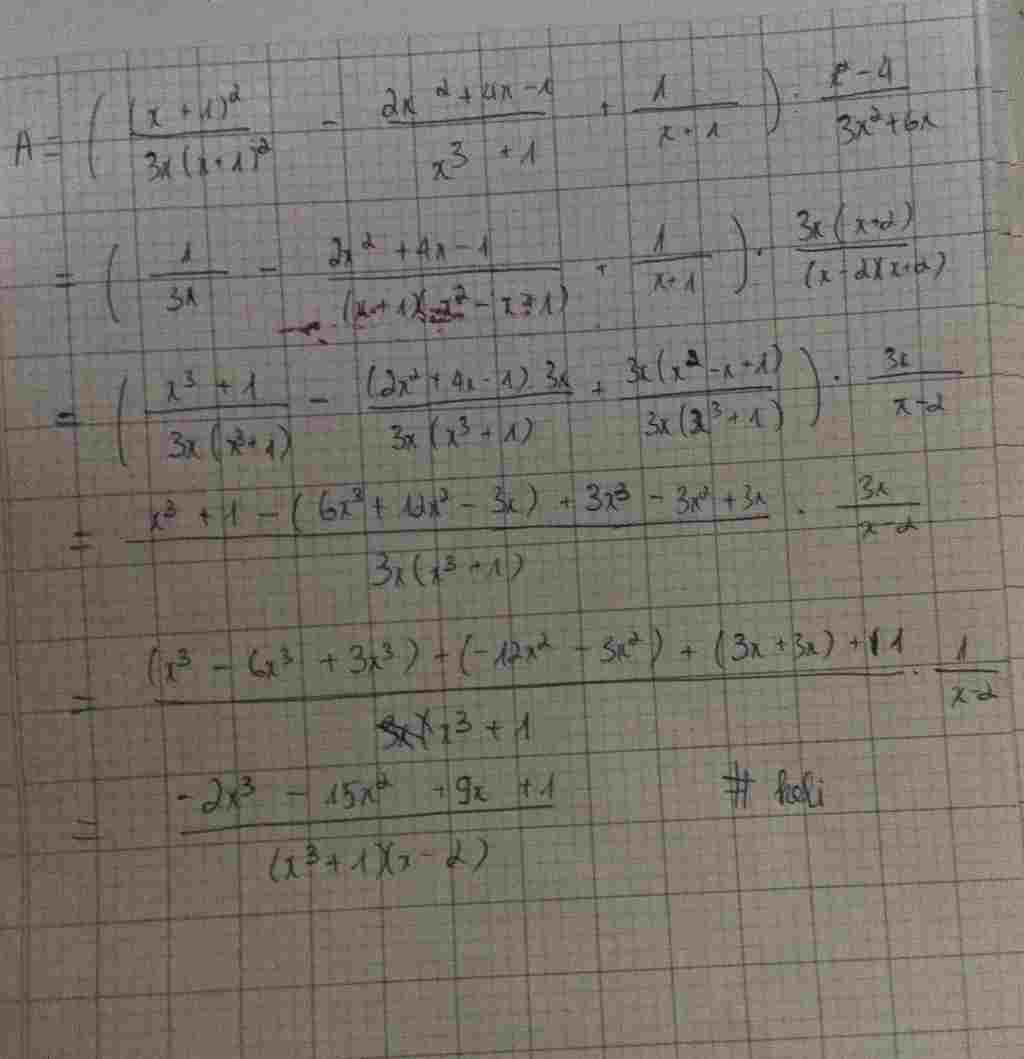 A = ( (x + 1)² / 3x(x+1)² - 2x² + 4x - 1 / x³ + 1 + 1 / x + 1 ) : x² - 4 / 3x² + 6x
= ( 1 / 3x - 2x² + 4x - 1 / (x + 1)(x² - x + 1) + 1 / x + 1 ) . 3x(x+2) / (x - 2)(x + 2)
= ( x³ + 1 / 3x(x³ + 1) - (2x² + 4x - 1) 3x / 3x(x³ + 1) + 3x(x² - x + 1) / 3x(x³ + 1) ) . 3x / x - 2
= x³ + 1 - (6x³ + 12x² - 3x) + 3x³ - 3x² + 3x / 3x(x³ + 1) . 3x / x - 2
= (x³ - 6x³ + 3x³) + (-12x² - 3x²) + (3x + 3x) + 1 / x³ + 1 . 1 / x - 2
= -2x³ - 15x² + 9x + 1 / (x³ + 1)(x - 2) # heli